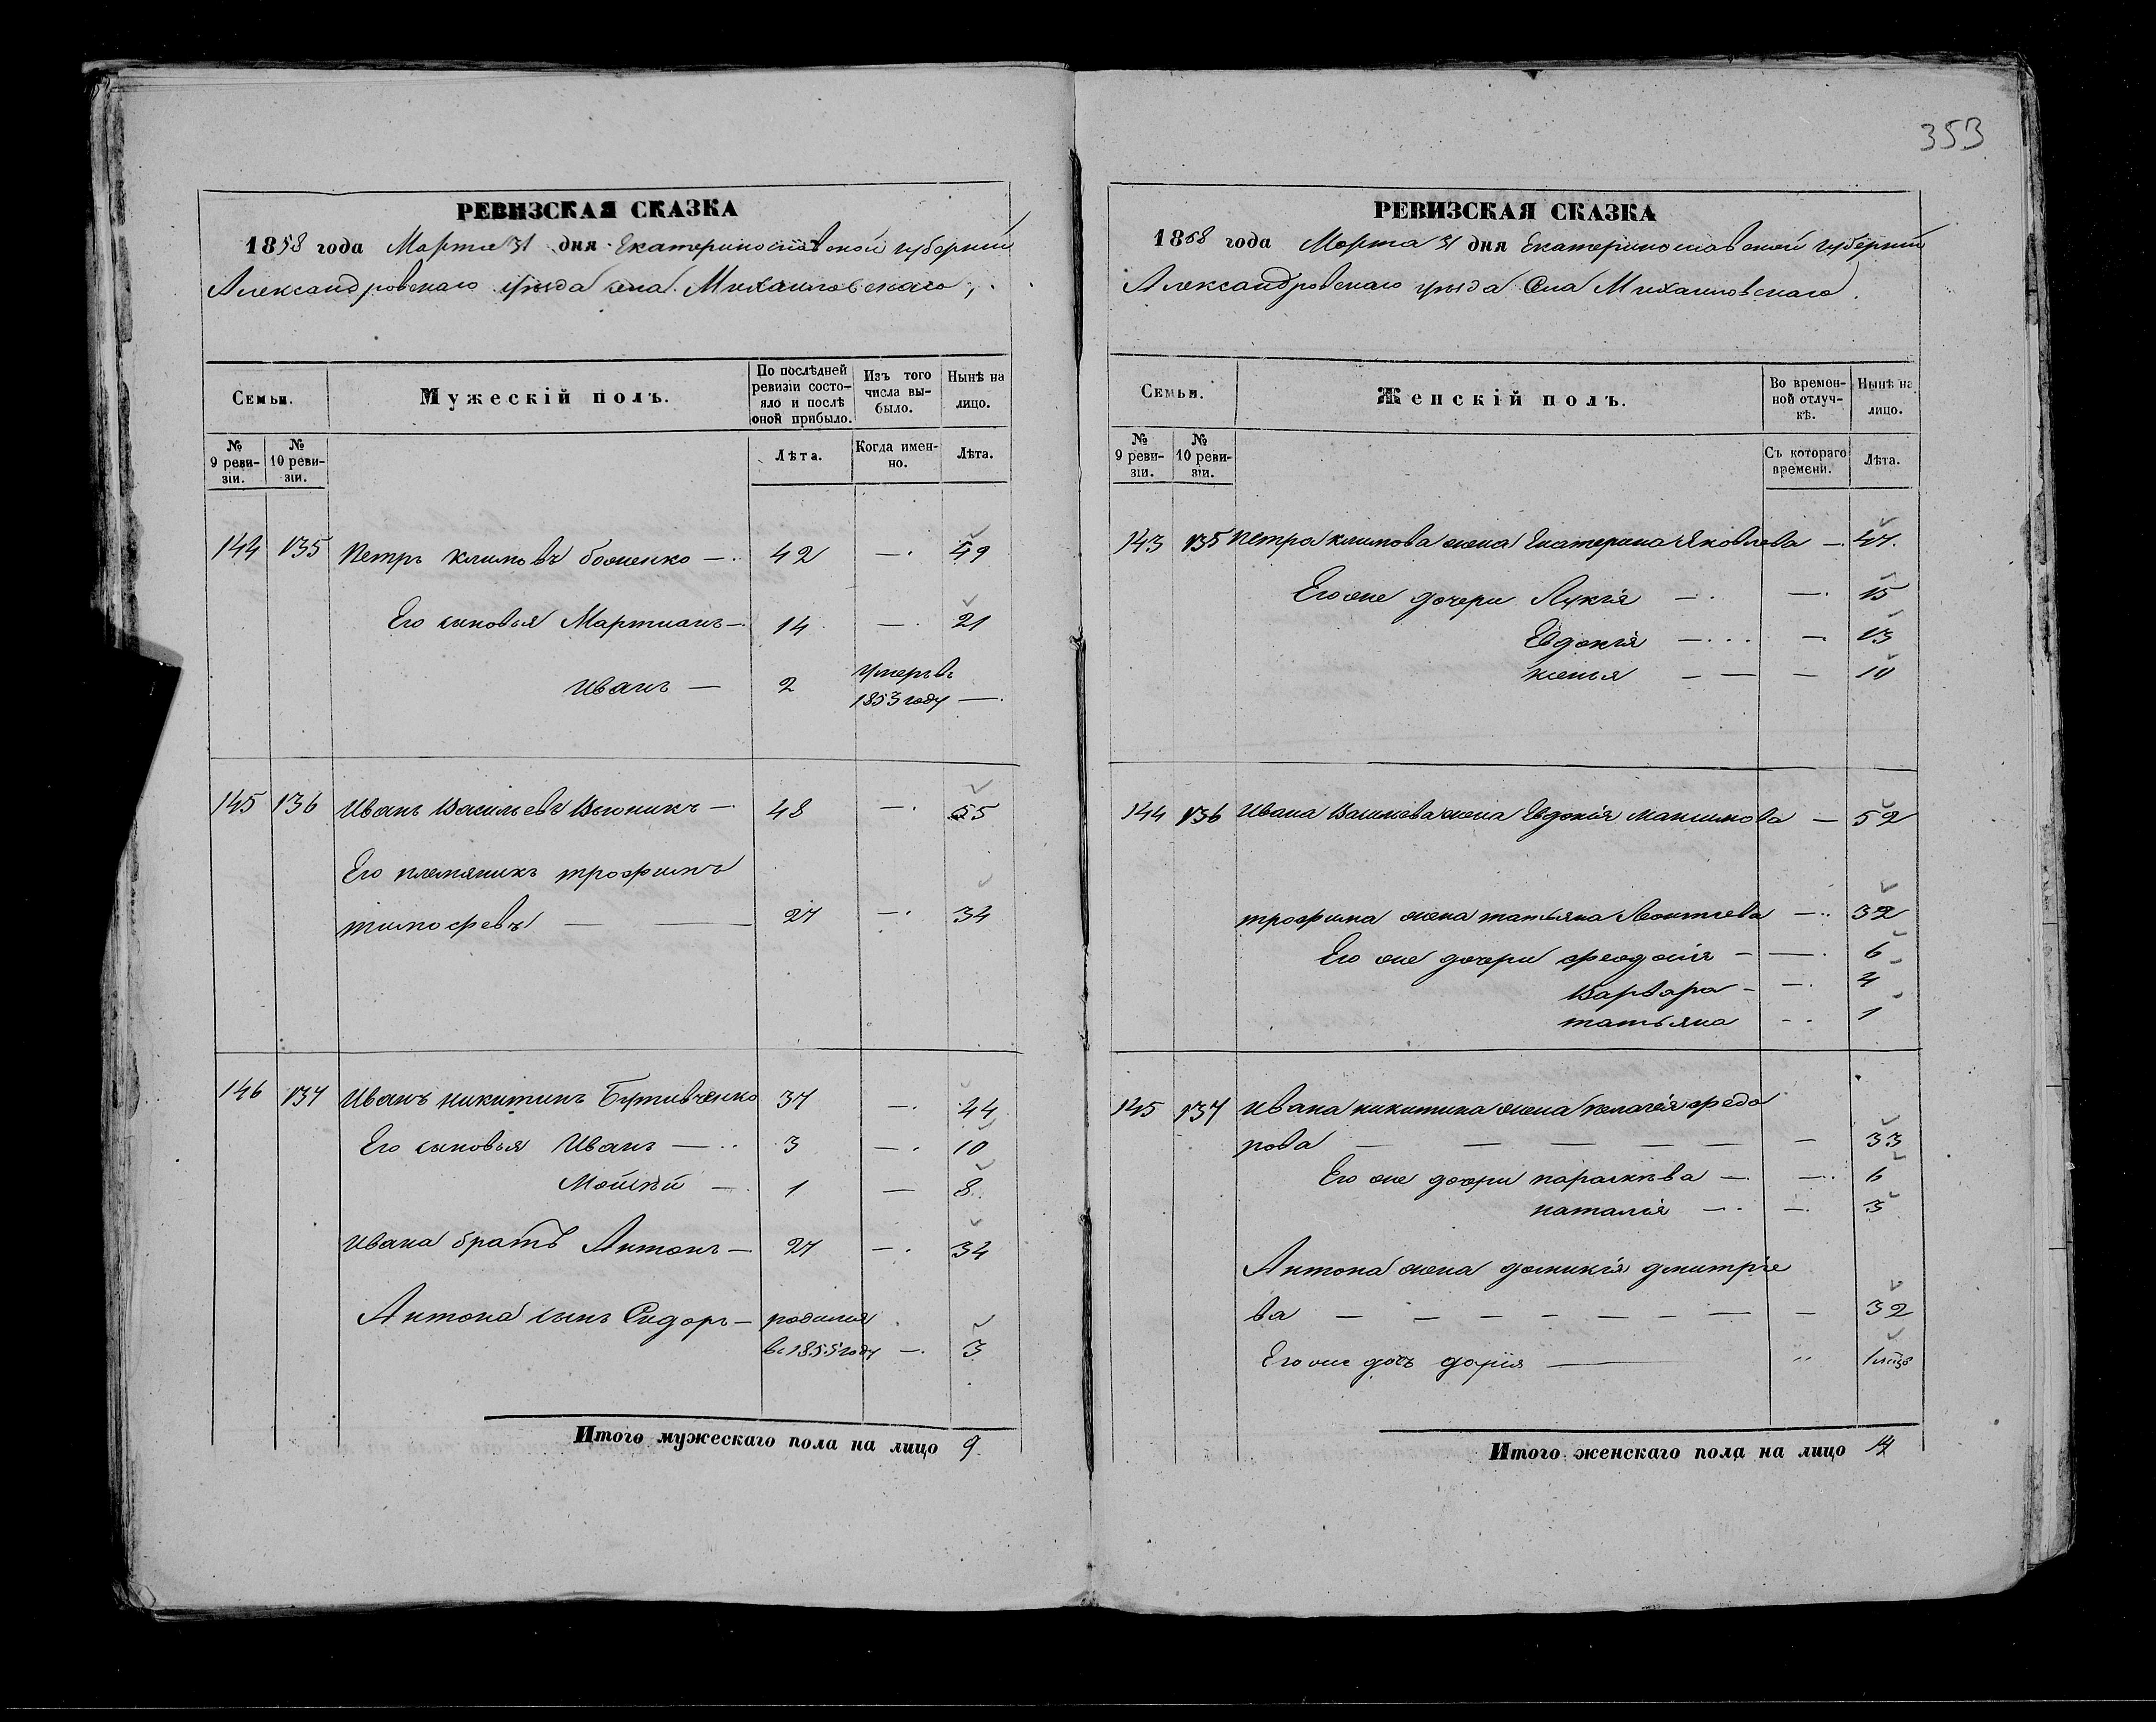 353
РЕВИЗСКАЯ СКАЗКА
1858 года Марта 31 дня Екатеринославской губерніи
Александровскаго уѣзда села Михайловскаго,
Семьи.
Мужескій полъ.
По послѣдней ревизіи состояло и послѣ оной прибыло.
Изъ того числа выбыло.
Нынѣ на лицо.
№ 9 ревизіи.
№ 10 ревизіи.
Лѣта.
Когда именно.
Лѣта.
144 135 Петръ Климовъ — 42 — 49
Его сыновья Мартианъ — 14 — 21
Иванъ — 2 умеръ въ
1853 году —
145 136 Иванъ Васильевъ Вьюникъ — 48 — 55
Его племяникъ трофимъ
тимофеевъ — — 27 — 34
146 137 Иванъ никитинъ Бутивченко 37 — 44
Его сыновья Иванъ — 3 — 10
Мойсѣй — 1 — 8
Ивана братъ Антонъ — 27 — 34
Антона сынъ Сидоръ — родился
въ 1855 году — 3
Итого мужескаго пола на лицо 9
РЕВИЗСКАЯ СКАЗКА
1858 года Марта 31 дня Екатеринославской губерніи
Александровскаго уѣзда Села Михайловскаго.
Семьи.
Женскій полъ.
Во временной отлучкѣ.
Нынѣ на лицо.
№ 9 ревизіи.
№ 10 ревизіи.
Съ котораго времени.
Лѣта.
143 135 Петра климова жена Екатерина Яковлева — 47.
Его же дочери Лукія — — 15
Евдокія — — 13
— — — 10
144 136 Ивана Васильева жена Евдокія максимова — 52
трофима жена татьяна Леонтьева — 32
Его же дочери феодосія — — 6
Варвара — — 4
татьяна — 1
145 137 Ивана никитина жена пелагея федо
рова — — — — — — 33
Его же дочери параскѣва — — 6
наталія — — 3
Антона жена домникія дмитріе
ва — — — — — — — — 32
Его же дочь дарія — " 1 мѣсяц
Итого женскаго пола на лицо 14